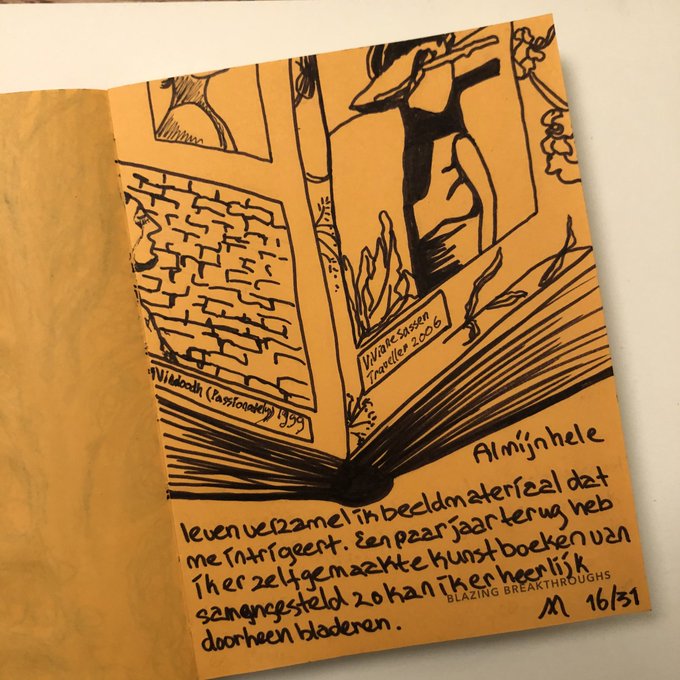 Viviane Sassen
Traveller 2006
Vinoodh (Passionately) 1999
Al mijn hele
leven verzamel ik beeldmateriaal dat
me intrigeert. Een paar jaar terug heb
ik er zelfgemaakte kunstboeken van
samengesteld zo kan ik er heerlijk
BLAZING BREAKTHROUGHS
doorheen bladeren.
16/31